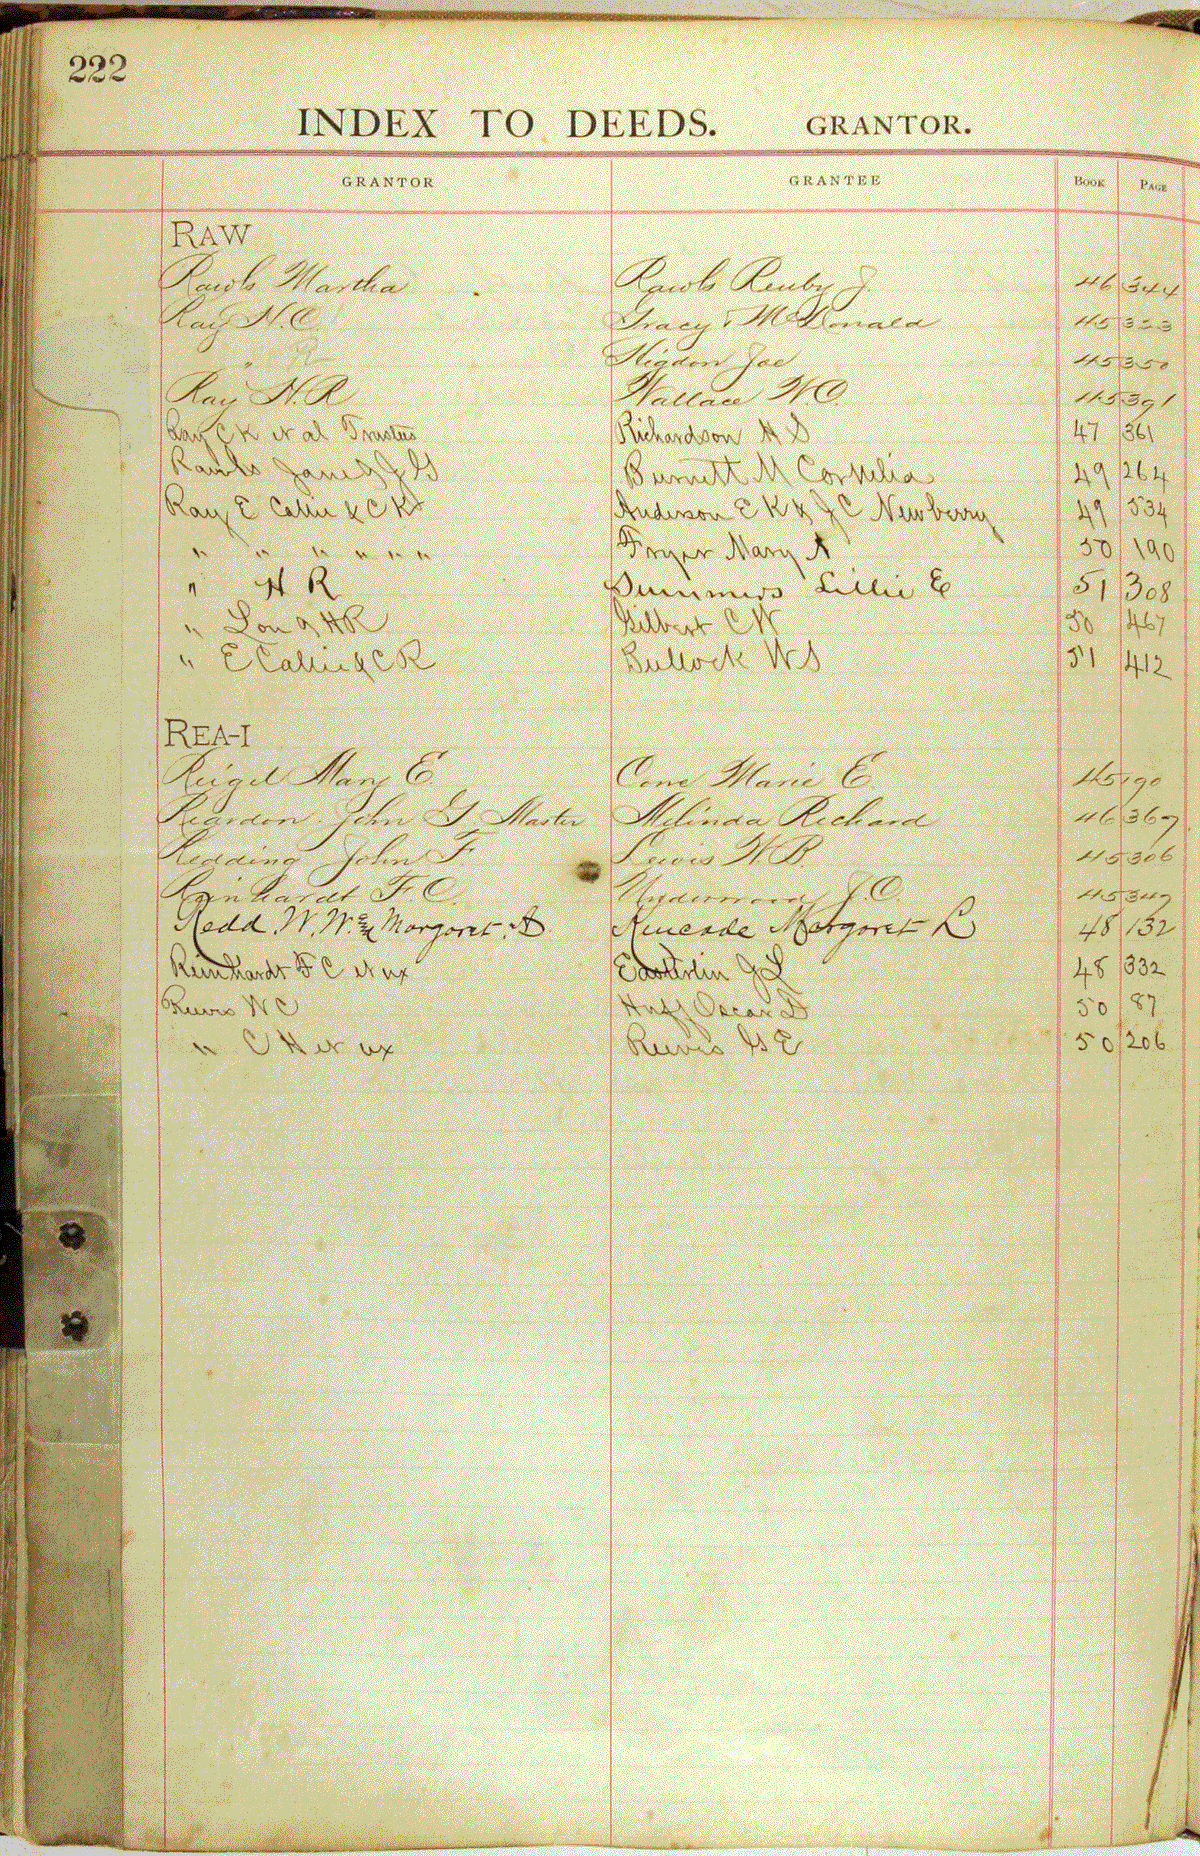 222
INDEX TO DEEDS. GRANTOR.
GRANTOR GRANTEE BOOK PAGE
RAW
Rawls Martha Rawls Reuby J. 46 344
Ray H.C. Gracy & McDonald 45 333
" R Higdon Joe 45 350
Ray H.R Wallace W.C. 45 391
Ray C K et al Trustees Richardson H S 47 361
Rawls Jane & J G Burnett M Cornelia 49 264
Ray E Callie & C K Anderson E K & J C Newberry 49 534
" " " " " " Fryer Mary A 50 190
" H R Summers Lillie E 51 308
" Lou & HR Gilbert C W 50 467
" E Callie & C R Bullock W S 51 412
REA-I
Reigel Mary E. Cone Marie E. 45 190
Reardon John G Master Melinda Richard 46 367
Redding John F Lewis W.B. 45 306
Reinhardt F.C. Underwood J.C. 45 347
Redd. W. W. & Margaret. A. Margaret L 48 132
Reinhardt F C et ux Easterlin J L 48 332
Reeves W C Huff Oscar D 50 87
" C H et ux Reeves G E 50 206